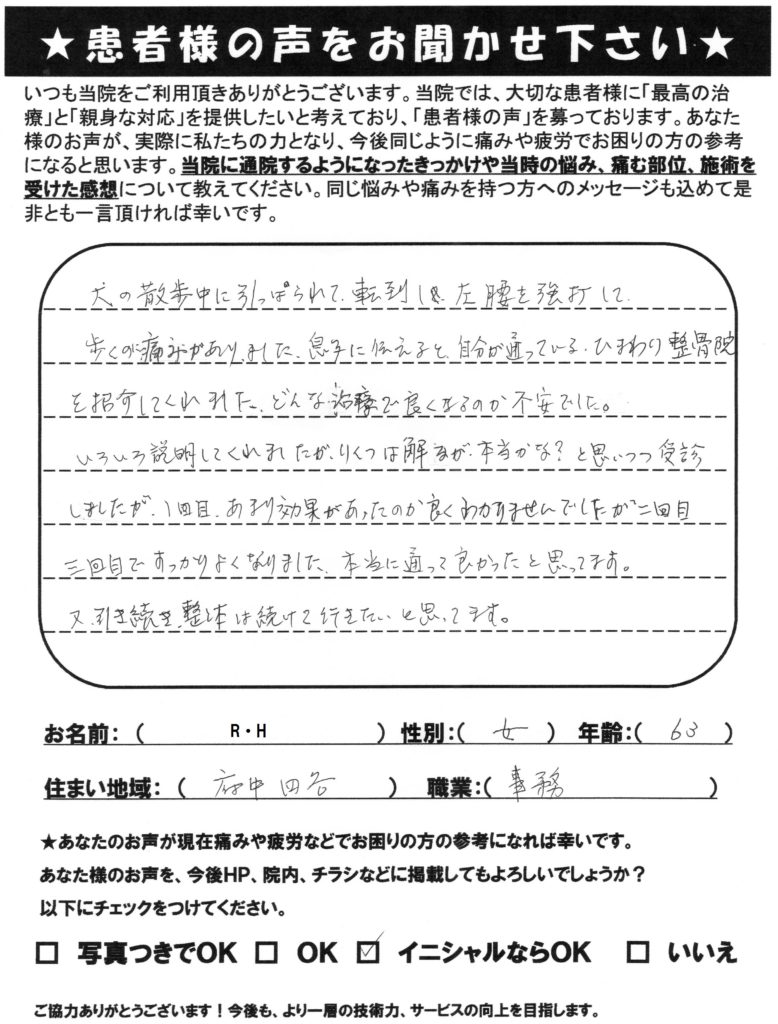 ★患者様の声をお聞かせ下さい★
いつも当院をご利用頂きありがとうございます。当院では、大切な患者様に「最高の治
療」と「親身な対応」を提供したいと考えており、「患者様の声」を募っております。あなた
様のお声が、実際に私たちの力となり、今後同じように痛みや疲労でお困りの方の参考
になると思います。当院に通院するようになったきっかけや当時の悩み、痛む部位、施術を
受けた感想について教えてください。同じ悩みや痛みを持つ方へのメッセージも込めて是
非とも一言頂ければ幸いです。
犬の散歩中に引っぱられて、転到し、左腰を強打して、
歩くのが痛みがありました、息子に伝えると、自分が通っている、ひまわり整骨院
を招介してくれました、どんな治療で良くなるのか不安でした。
いろいろ説明してくれましたが、りくつは解るが、本当かな?と思いつつ受診
しましたが、1回目、あまり効果があったのか良くわかりませんでしたが二回目
三回目ですっかりよくなりました、本当に通って良かったと思ってます。
又、引き続き、整体は続けて行きたいと思ってます。
お名前:( R・H ) 性別:( 女 ) 年齢:( 63 )
住まい地域: ( 府中四谷 ) 職業:( 事務 )
★あなたのお声が現在痛みや疲労などでお困りの方の参考になれば幸いです。
あなた様のお声を、今後HP、院内、チラシなどに掲載してもよろしいでしょうか?
以下にチェックをつけてください。
□ 写真つきでOK □ OK ☑ イニシャルならOK □ いいえ
ご協力ありがとうございます!今後も、より一層の技術力、サービスの向上を目指します。